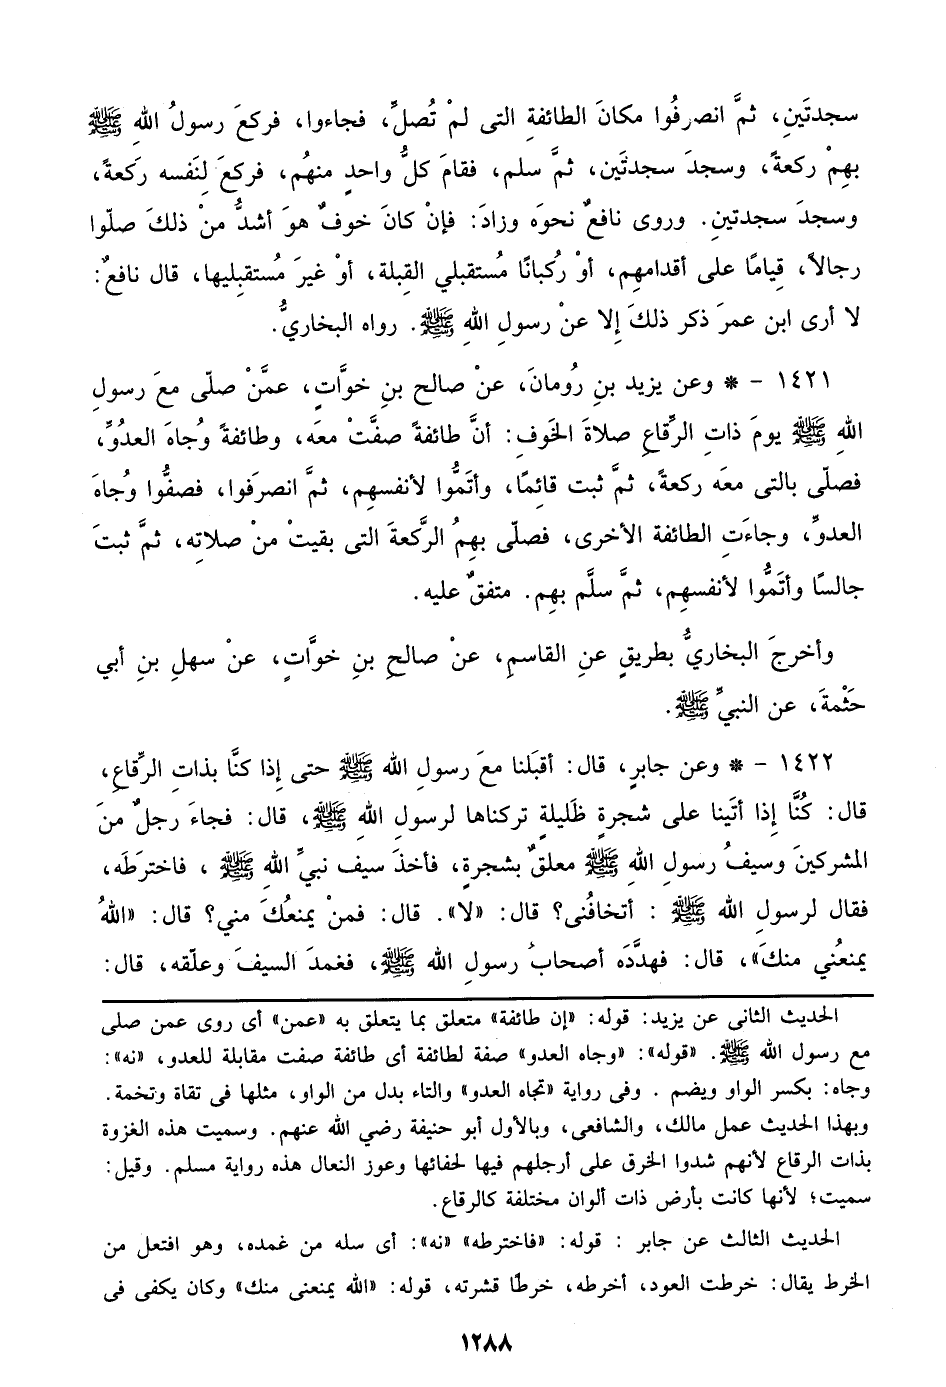 سجدتَينِ، ثمَّ انصرفُوا مكانَ الطائفةِ التى لمْ تُصلِّ، فجاءوا، فركعَ رسولُ اللهِ ﷺ
بهِمْ ركعةً، وسجدَ سجدتَين، ثمَّ سلم، فقامَ كلُّ واحدٍ منهُم، فركعَ لِنَفسه ركعةً،
وسجدَ سجدتينِ. وروى نافعٌ نحوَه وزادَ: فإنْ كانَ خوفٌ هوَ أشدُّ منْ ذلكَ صلّوا
رجالاً، قِيامًا على أقدامهِم، أوْ رُكبانًا مُستقبلي القبلة، أوْ غيرَ مُستقبِليها، قال نافعٌ:
لا أرى ابن عمرَ ذكر ذلكَ إلا عنْ رسولِ اللهِ ﷺ. رواه البخاريُّ.
١٤٢١ - * وعن يزيد بنِ رُومانَ، عنْ صالح بنِ خوَّاتٍ، عمَّنْ صلّى معَ رسولِ
اللهِ ﷺ يومَ ذاتِ الرِّقاعِ صلاةَ الخوفِ: أنَّ طائفةً صفَّتْ معَه، وطائفةً وُجاهَ العدُوِّ،
فصلّى بالتى معَه ركعةً، ثمَّ ثبت قائمًا، وأتَمُّوا لأنفسهِم، ثمَّ انصرَفوا، فصفُّوا وُجاهَ
العدوِّ، وجاءَتِ الطائفة الأخرى، فصلّى بهِمُ الرَّكعةَ التى بقيتْ منْ صلاتِه، ثمَّ ثبتَ
جالسًا وأتَمُّوا لأنفسهِم، ثمَّ سلَّم بهِم. متفقٌ عليه.
وأخرجَ البخاريُّ بطريقٍ عنِ القاسمِ، عنْ صالحِ بنِ خوَّاتٍ، عنْ سهلِ بنِ أبي
حَثْمةَ، عن النبيِّ ﷺ.
١٤٢٢ - * وعن جابرٍ، قال: أقبَلنا معَ رسولِ الله ﷺ حتى إذا كنَّا بذاتِ الرِّقاعِ،
قال: كُنَّا إذا أتَينا على شجرةٍ ظَليلةٍ تركناها لرسولِ اللهِ ﷺ، قال: فجاءَ رجلٌ منَ
المشركينَ وسيفُ رسولِ اللهِ ﷺ معلقٌ بشجرةٍ، فأخذَ سيف نبيِّ اللهِ ﷺ ، فاخترَطَه،
فقال لرسولِ الله ﷺ : أتخافُنى؟ قال: «لا». قال: فمنْ يمنعُكَ مني؟ قال: «اللهُ
يمنعُني منكَ»، قال: فهدَّدَه أصحابُ رسولِ الله ﷺ، فغمدَ السيفَ وعلّقه، قال:
الحديث الثانى عن يزيد: قوله: «إن طائفة» متعلق بما يتعلق به «عمن» أى روى عمن صلى
مع رسول الله ﷺ. «قوله»: «وجاه العدو» صفة لطائفة أى طائفة صفت مقابلة للعدو، «نه»:
وجاه: بكسر الواو ويضم . وفى رواية «تجاه العدو» والتاء بدل من الواو، مثلها فى تقاة وتخمة.
وبهذا الحديث عمل مالك، والشافعى، وبالأول أبو حنيفة رضي الله عنهم. وسميت هذه الغزوة
بذات الرقاع لأنهم شدوا الخرق على أرجلهم فيها لحفائها وعوز النعال هذه رواية مسلم. وقيل:
سميت؛ لأنها كانت بأرض ذات ألوان مختلفة كالرقاع.
الحديث الثالث عن جابر : قوله: «فاخترطه» «نه»: أى سله من غمده، وهو افتعل من
الخرط يقال: خرطت العود، أخرطه، خرطًا قشرته، قوله: «الله يمنعنى منك» وكان يكفى فى
١٢٨٨